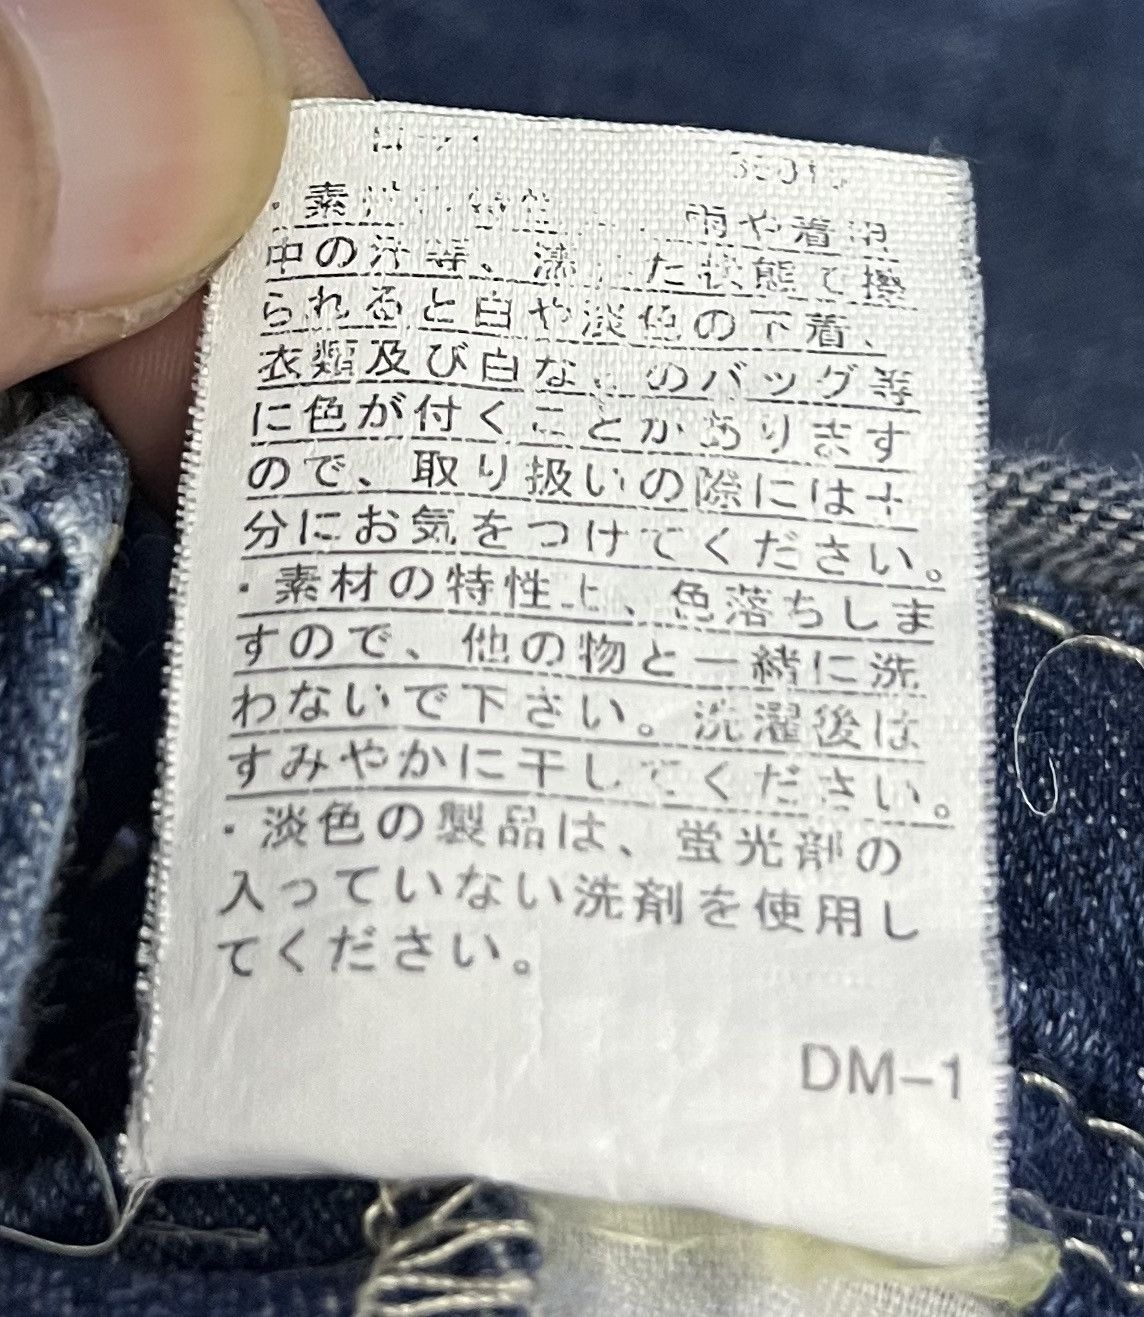 ・素 雨や着用
中の汗等、濡れた状態で擦
られると白や淡色の下着、
衣類及び白な のバッグ等
に色が付くことがあります
ので、取り扱いの際には十
分にお気をつけてください。
・素材の特性上、色落ちしま
すので、他の物と一緒に洗
わないで下さい。洗濯後は
すみやかに干してください。
・淡色の製品は、蛍光剤の
入っていない洗剤を使用し
てください。
DM-1